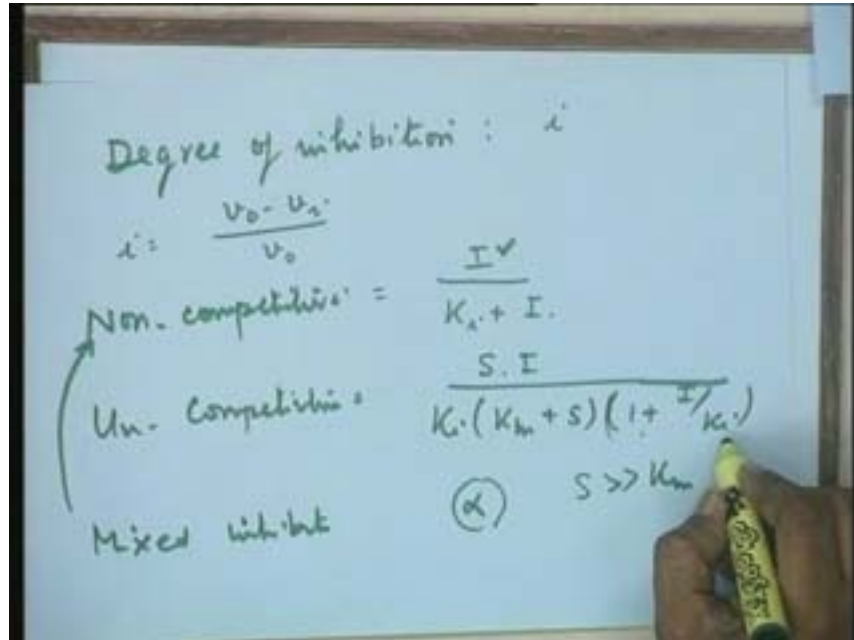 Degree of inhibition : i
i = v₀ - vᵢ / v₀
Non-competitive = I / Kᵢ + I.
Un-Competitive = S.I / Kᵢ (Kₘ + S) (1 + I/Kᵢ)
S >> Kₘ
Mixed inhibit (α)